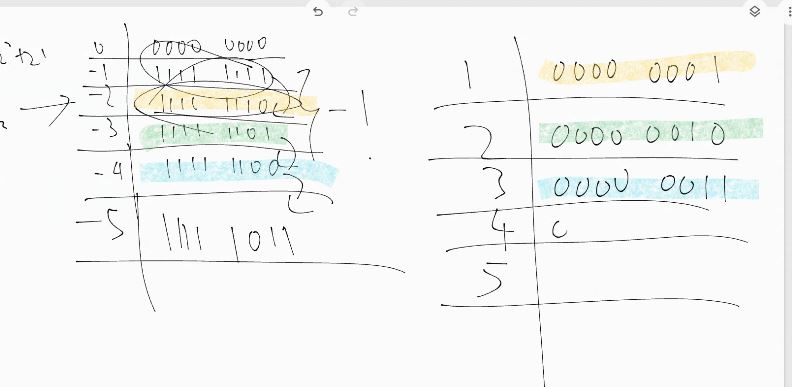 0 0000 0000
-1 1111 1111
-2 1111 1110
-3 1111 1101
-4 1111 1100
-5 1111 1011
-1
1 0000 0001
2 0000 0010
3 0000 0011
4 0
5